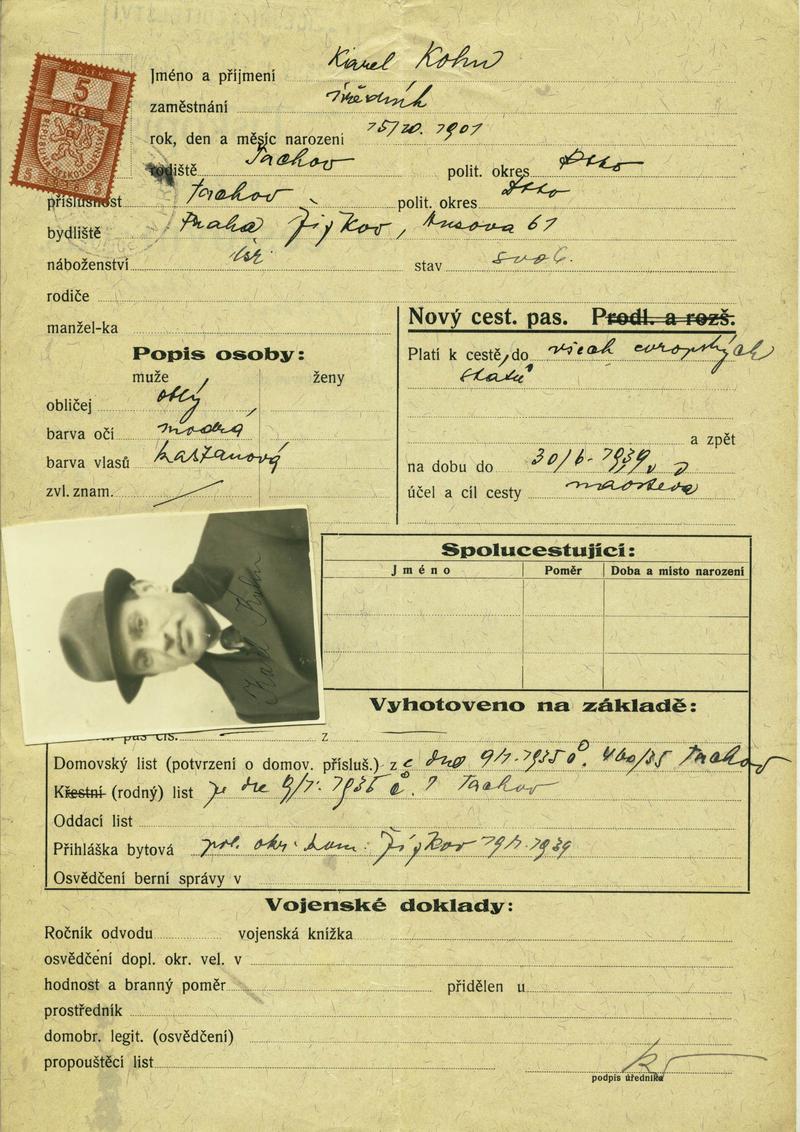 KOLEK
5
Kč
REPUBLIKA ČESKOSLOVENSKÁ
5 5
Jméno a příjmení Karel Kohn
zaměstnání úředník
rok, den a měsíc narození 1901
rodiště Tachov polit. okres Dtto
příslušnost Tachov polit. okres Dtto
bydliště Praha Žižkov, Husova 61
náboženství isr. stav svob.
rodiče
manžel-ka
Popis osoby:
muže ženy
obličej oblý
barva očí modrá
barva vlasů kaštanová
zvl. znam.
Nový cest. pas. Prodl. a rozš.
Platí k cestě do všech evropských
států
a zpět
na dobu do 30/6. 1939
účel a cíl cesty návštěva
Karel Kohn
Spolucestující:
Jméno Poměr Doba a místo narození
Vyhotoveno na základě:
pas čís. z
Domovský list (potvrzení o domov. přísluš.) z e dne 9/7. 1935 č. 460/35 Tachov
Křestní (rodný) list ze dne 9/7. 1935 č. Tachov
Oddací list
Přihláška bytová pol. okr. kom. Žižkov 19/7. 1939
Osvědčení berní správy v
Vojenské doklady:
Ročník odvodu vojenská knížka
osvědčení dopl. okr. vel. v
hodnost a branný poměr přidělen u
prostředník
domobr. legit. (osvědčení)
propouštěcí list
podpis úředníka